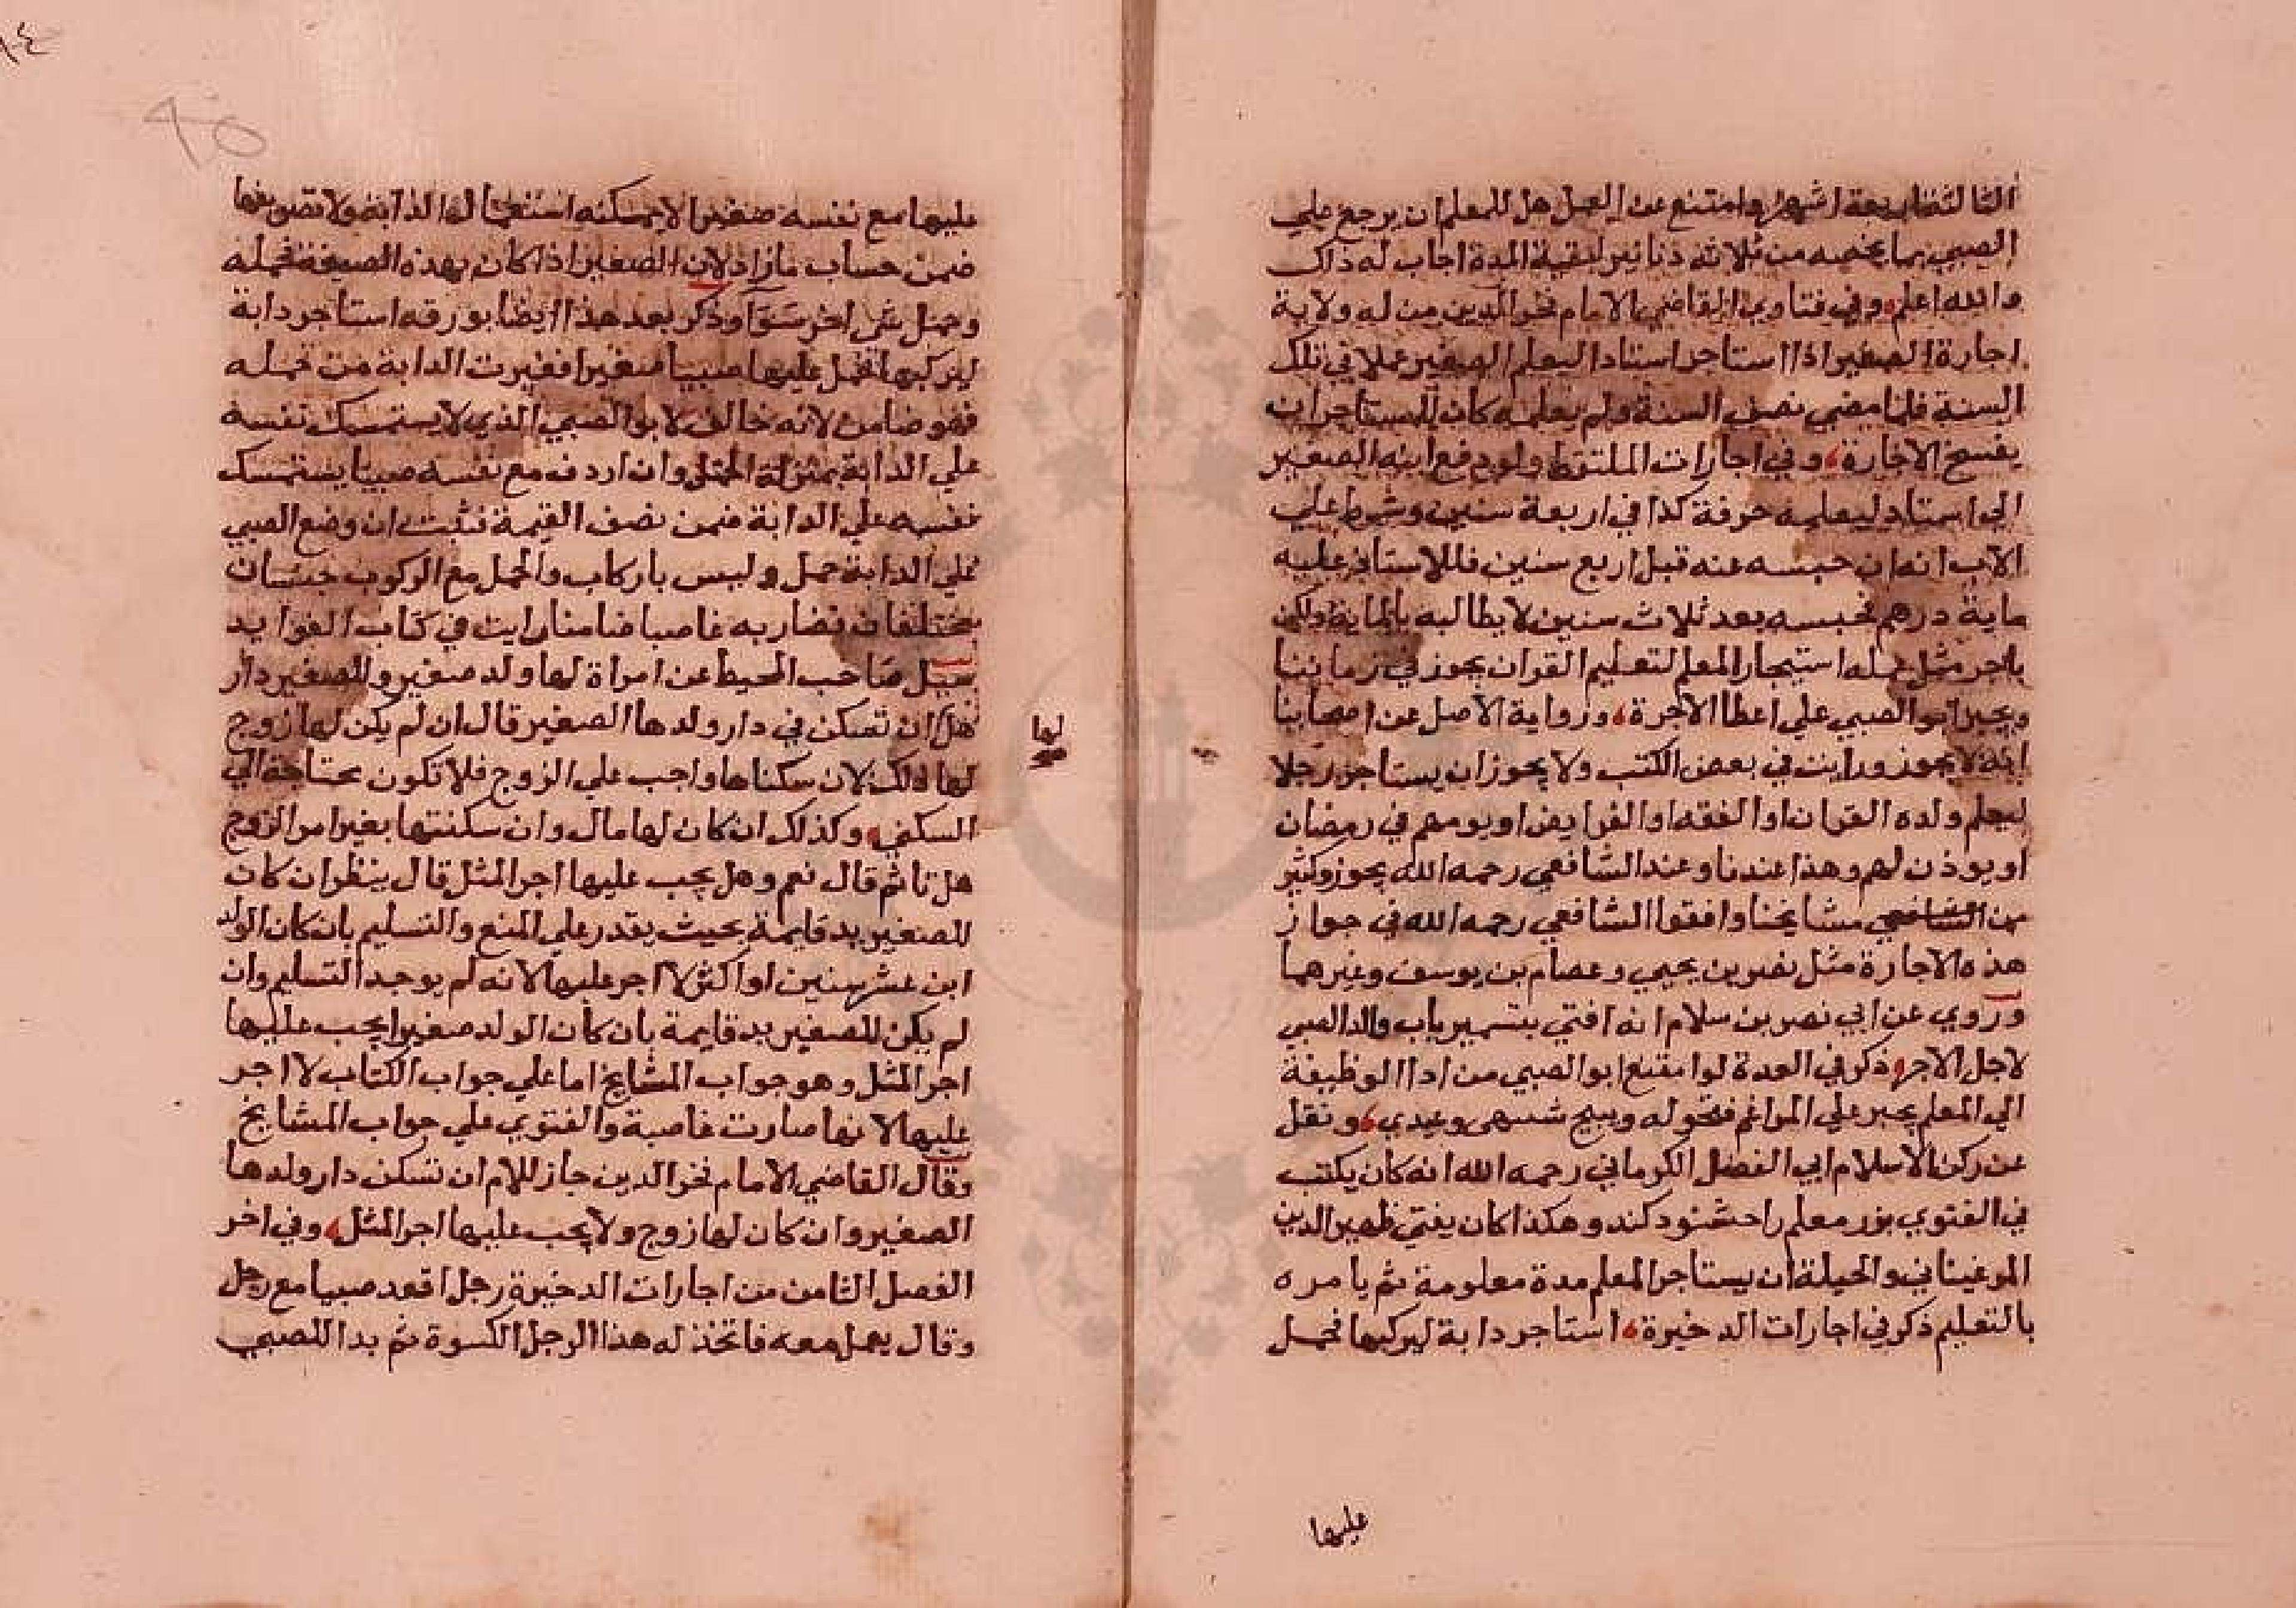 الثالثة اربعة اشهر وامتنع عن العمل هل للمعلم ان يرجع علي
الصبي بما يخصه من ثلاثة دنانير لبقية المدة اجاب له ذلك
والله اعلم وفي فتاوي القاضي الامام فخر الدين من له ولاية
اجارة الصغير اذا استاجر استادا ليعلم الصغير عملا في تلك
السنة فلما مضي نصف السنة ولم يعلمه كان للمستاجر ان
يفسخ الاجارة وفي اجارات الملتقط ولو دفع ابنه الصغير
الي استاد ليعلمه حرفة كذا في اربعة سنين وشرط علي
الاب انه ان حبسه عنه قبل اربع سنين فللاستاذ عليه
ماية درهم فحبسه بعد ثلاث سنين لا يطالبه بالماية ولكن
باجر مثل عمله استيجار المعلم لتعليم القران يجوز في زماننا
ويجبر ابو الصبي علي اعطا الاجرة ورواية الاصل عن اصحابنا
انه لا يجوز ورايت في بعض الكتب ولا يجوز ان يستاجر رجلا
ليعلم ولده القران او الفقه او الفرايض او يومهم في رمضان
او يوذن لهم وهذا عندنا وعند الشافعي رحمه الله يجوز وكثير
من الشافعي مشايخنا وافقوا الشافعي رحمه الله في جواز
هذه الاجارة مثل نصر بن يحيي وعصام بن يوسف وغيرهما
وروي عن ابي نصر بن سلام انه افتي بتسمير باب والد الصبي
لاجل الاجر ذكر في العدة لو امتنع ابو الصبي من ادا الوظيفة
الي المعلم يجبر علي المراغم فنحوله وبينج شنبهي وعيدي ونقل
عن ركن الاسلام ابي الفضل الكرماني رحمه الله انه كان يكتب
في الفتوي بزر معلم را خشنود كند وهكذا كان يفتي ظهير الدين
المرغيناني والحيلة ان يستاجر المعلم مدة معلومة ثم يامره
بالتعليم ذكر في اجارات الدخيرة استاجر دابة ليركبها فحمل
عليها
عليها مع نفسه صغيرا لا يمكنه استعمال الدابة ولا تصريفها
ضمن حساب ما زاد لان الصغير اذا كان بهذه الصيغة فحمله
وحمل شي اخر سوا وذكر بعد هذا ايضا بورقه استاجر دابة
ليركبها فحمل عليها صبيا صغيرا فعقرت الدابة من حمله
فهو ضامن لانه خالف لا بو الصبي الذي لا يستمسك نفسه
علي الدابة بمنزلة الحمل وان اردف مع نفسه صبيا يستمسك
نفسه علي الدابة ضمن نصف القيمة فثبت ان وضع الصبي
علي الدابة حمل وليس باركاب والحمل مع الركوب جنسان
مختلفان فصار به غاصبا ضامنا رايت في كتاب الفوايد
سيل صاحب المحيط عن امراة لها ولد صغير وللصغير دار
هل ان تسكن في دار ولدها الصغير قال ان لم يكن لها زوج
لها
لها ذلك لان سكناها واجب علي الزوج فلا تكون محتاجة الي
السكني وكذلك ان كان لها مال وان سكنتها بغير امر الزوج
هل تاثم قال نعم وهل يجب عليها اجر المثل قال ينظر ان كان
للصغير يد قايمة بحيث يقدر علي المنع والتسليم بان كان الولد
ابن عشر سنين او اكثر لا اجر عليها لانه لم يوجد التسليم وان
لم يكن للصغير يد قايمة بان كان الولد صغيرا يجب عليها
اجر المثل وهو جواب المشايخ اما علي جواب الكتاب لا اجر
عليها لانها صارت غاصبة والفتوي علي جواب المشايخ
وقال القاضي الامام فخر الدين جاز للام ان تسكن دار ولدها
الصغير وان كان لها زوج ولا يجب عليها اجر المثل وفي اخر
الفصل الثامن من اجارات الدخيرة رجل اقعد صبيا مع رجل
وقال يعمل معه فاتخذ له هذا الرجل الكسوة ثم بدا للصبي